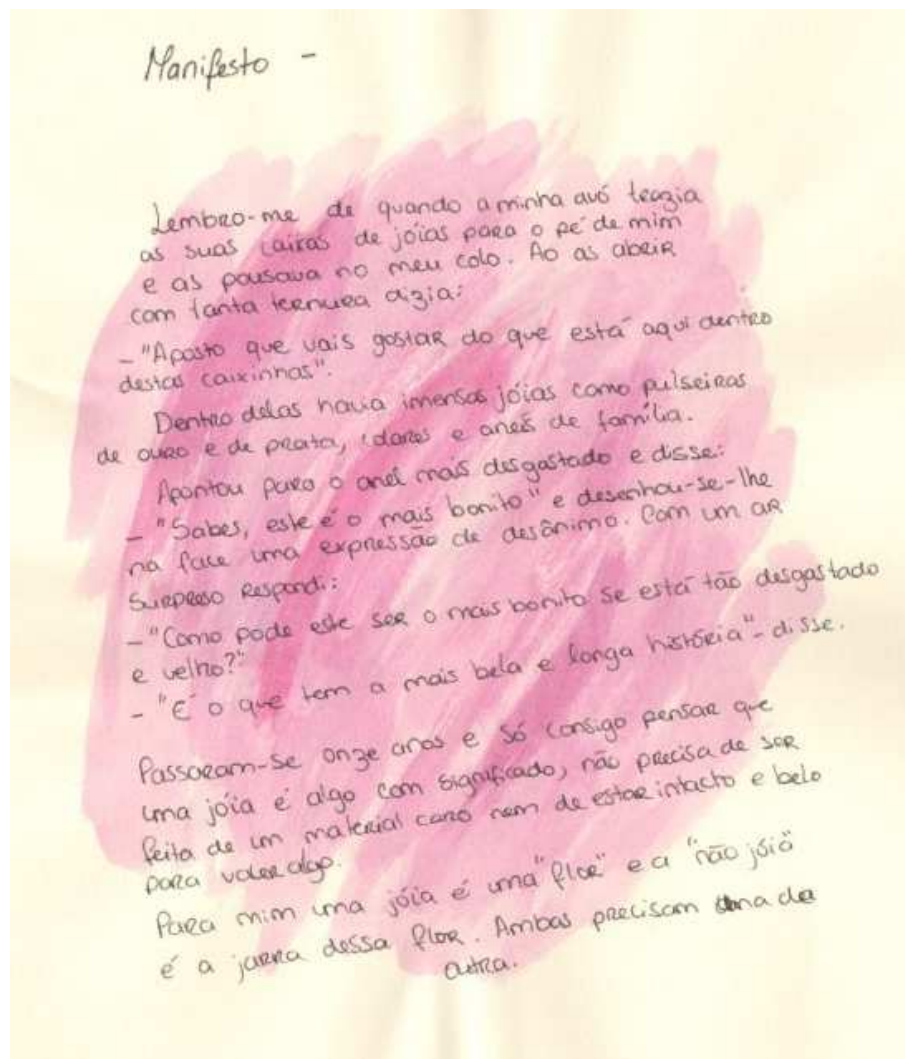 Manifesto -
Lembro-me de quando a minha avó trazia
as suas caixas de jóias para o pé de mim
e as pousava no meu colo. Ao as abrir
com tanta ternura dizia:
- "Aposto que vais gostar do que está aqui dentro
destas caixinhas".
Dentro delas havia imensas jóias como pulseiras
de ouro e de prata, colares e anéis de família.
Apontou para o anel mais desgastado e disse:
- "Sabes, este é o mais bonito" e desenhou-se-lhe
na face uma expressão de desânimo. Com um ar
surpreso respondi:
- "Como pode este ser o mais bonito se está tão desgastado
e velho?"
- "É o que tem a mais bela e longa história" - disse.
Passaram-se onze anos e só consigo pensar que
uma jóia é algo com significado, não precisa de ser
feita de um material caro nem de estar intacto e belo
para valer algo.
Para mim uma jóia é uma "flor" e a "não jóia"
é a jarra dessa flor. Ambas precisam uma da
outra.